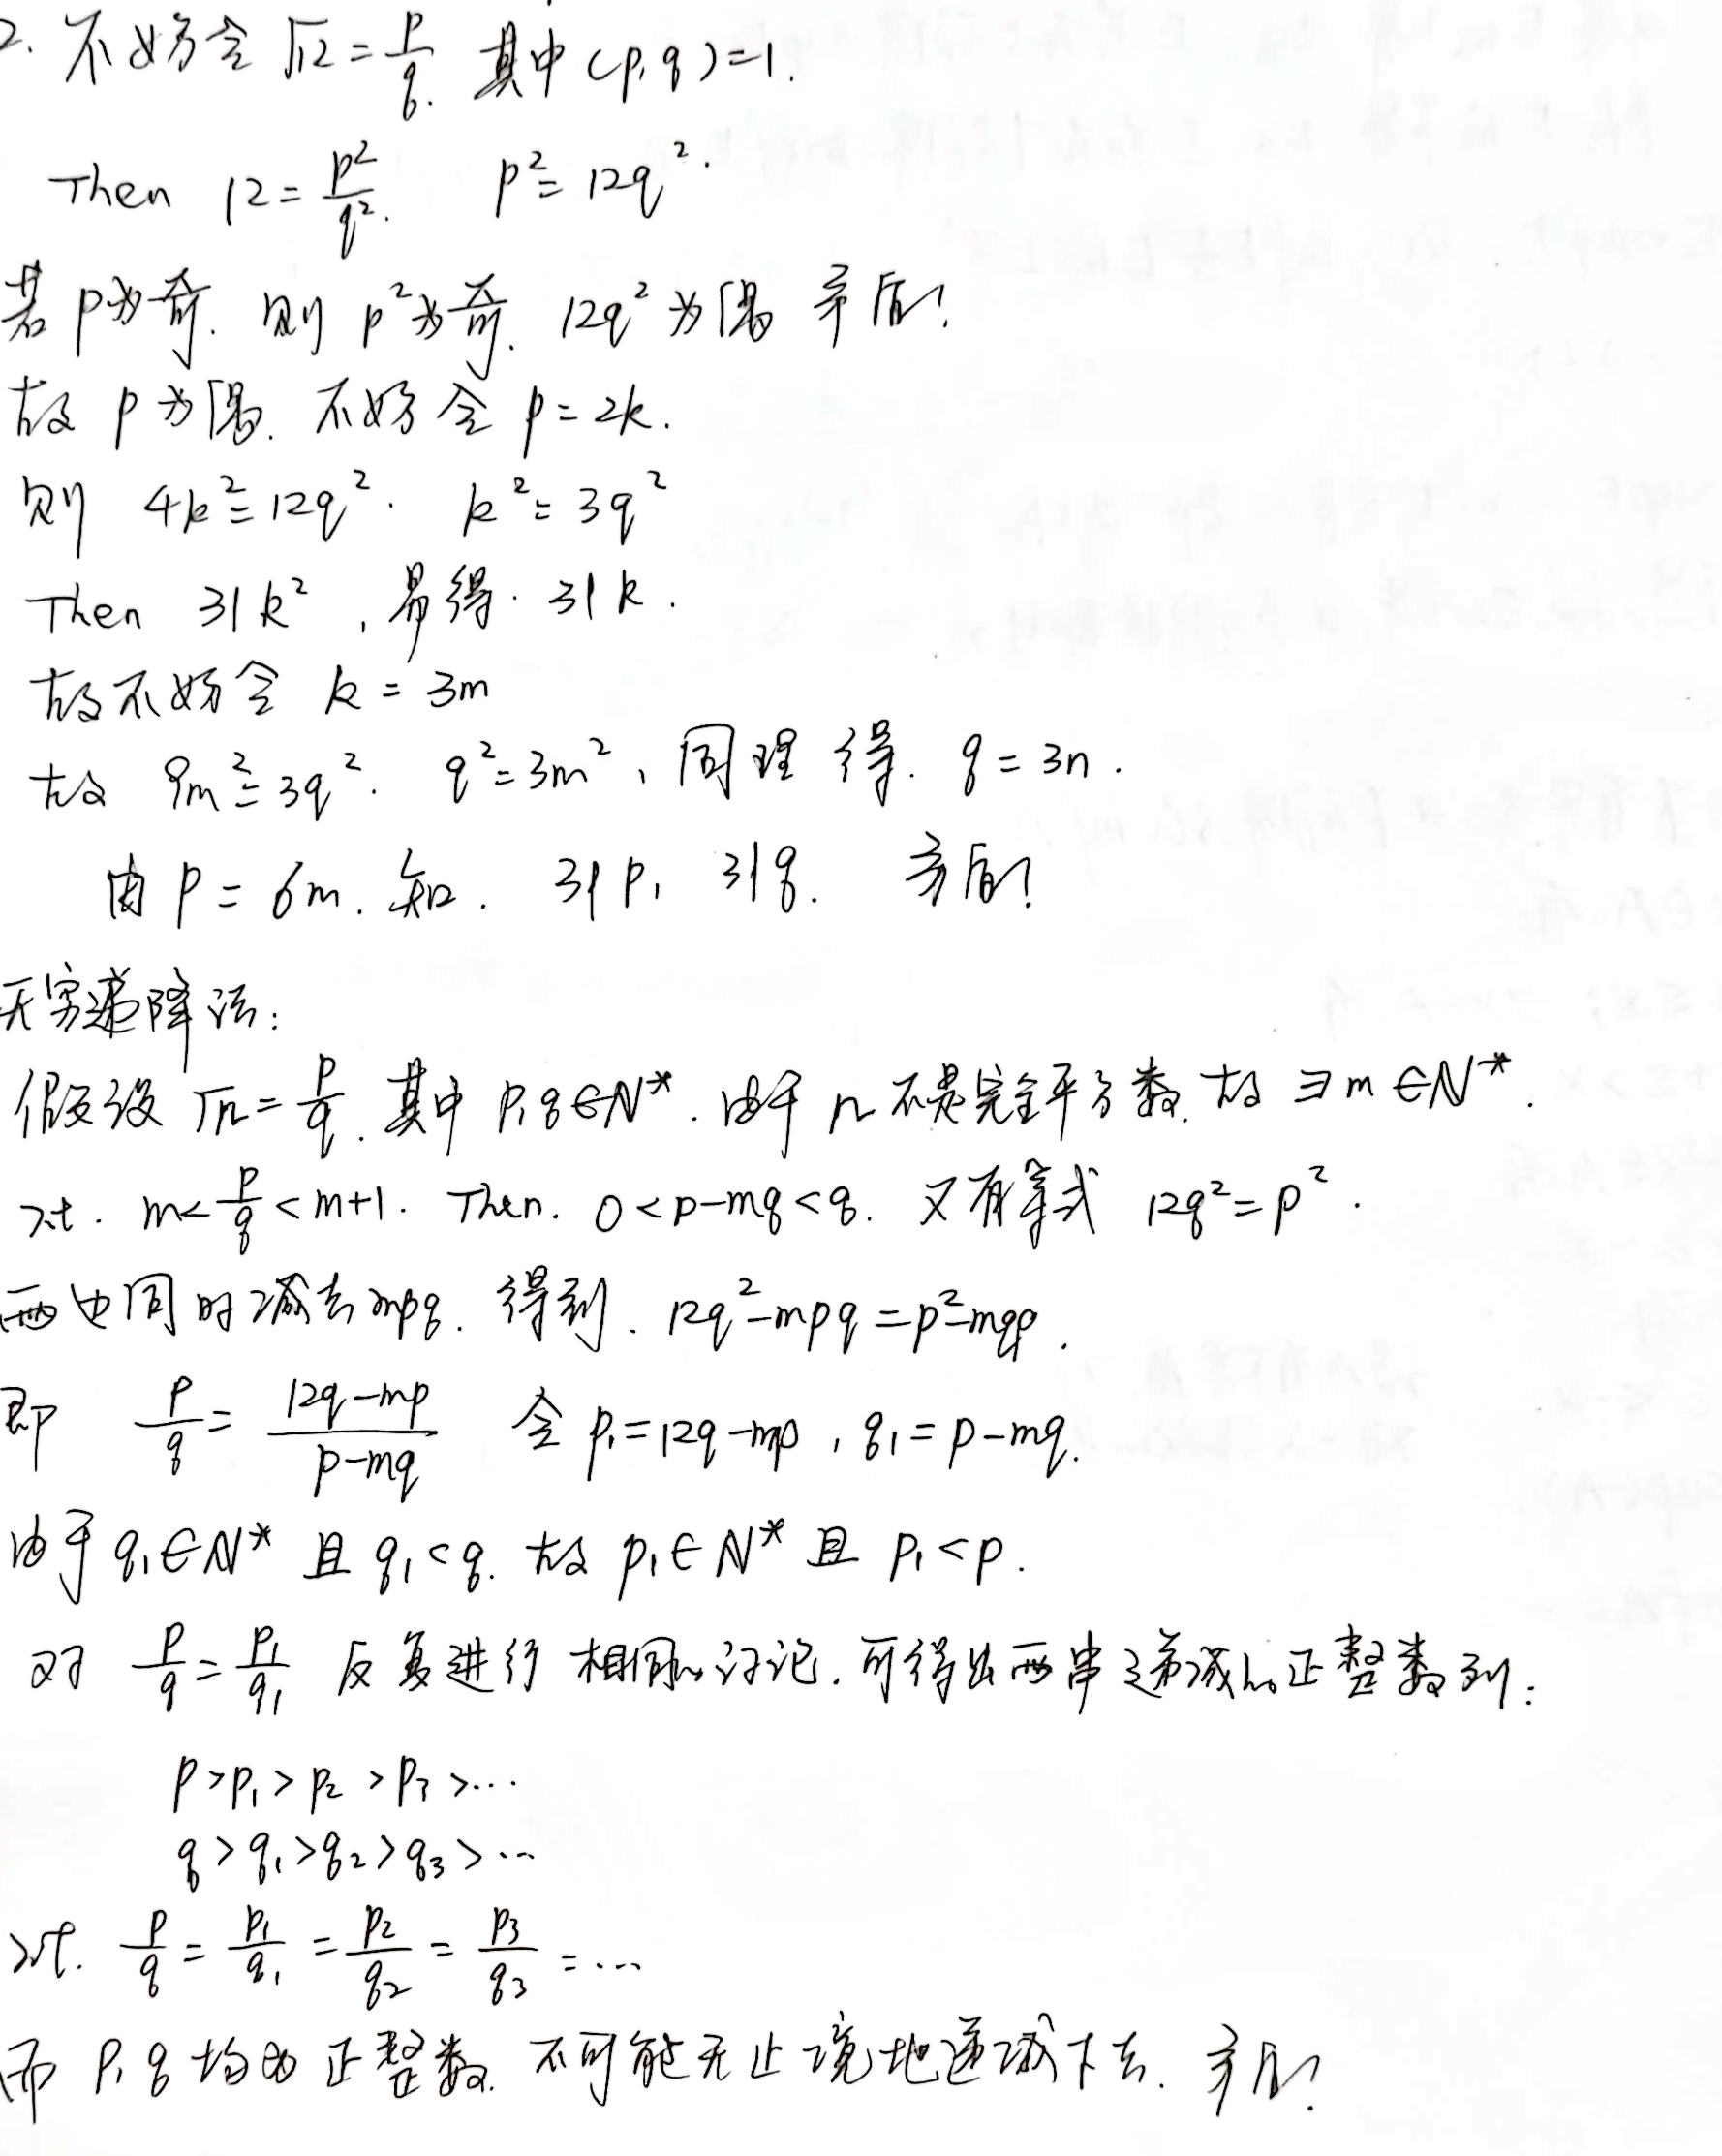 2. 不妨令 √12 = p/q. 其中 (p,q)=1.
Then 12 = p²/q². p² = 12q².
若 p为奇. 则 p²为奇. 12q² 为偶 矛盾!
故 p 为偶. 不妨令 p = 2k.
则 4k² = 12q². k² = 3q²
Then 3|k², 易得. 3|k.
故不妨令 k = 3m
故 9m² = 3q². q² = 3m², 同理得. q = 3n.
由 p = 6m. 知. 3|p, 3|q. 矛盾!
无穷递降法:
假设 √n = p/q. 其中 p,q∈N*. 由于 n 不是完全平方数. 故 ∃m∈N*.
s.t. m < p/q < m+1. Then. 0 < p-mq < q. 又有等式 12q² = p².
两边同时减去mpq. 得到. 12q²-mpq = p²-mqp.
即 p/q = (12q-mp)/(p-mq) 令 p₁ = 12q-mp, q₁ = p-mq.
由于 q₁∈N* 且 q₁<q. 故 p₁∈N* 且 p₁<p.
对 p/q = p₁/q₁ 反复进行相同的讨论. 可得出两串递减的正整数列:
p > p₁ > p₂ > p₃ > …
q > q₁ > q₂ > q₃ > …
s.t. p/q = p₁/q₁ = p₂/q₂ = p₃/q₃ = …
而 p,q 均为正整数. 不可能无止境地递减下去. 矛盾!